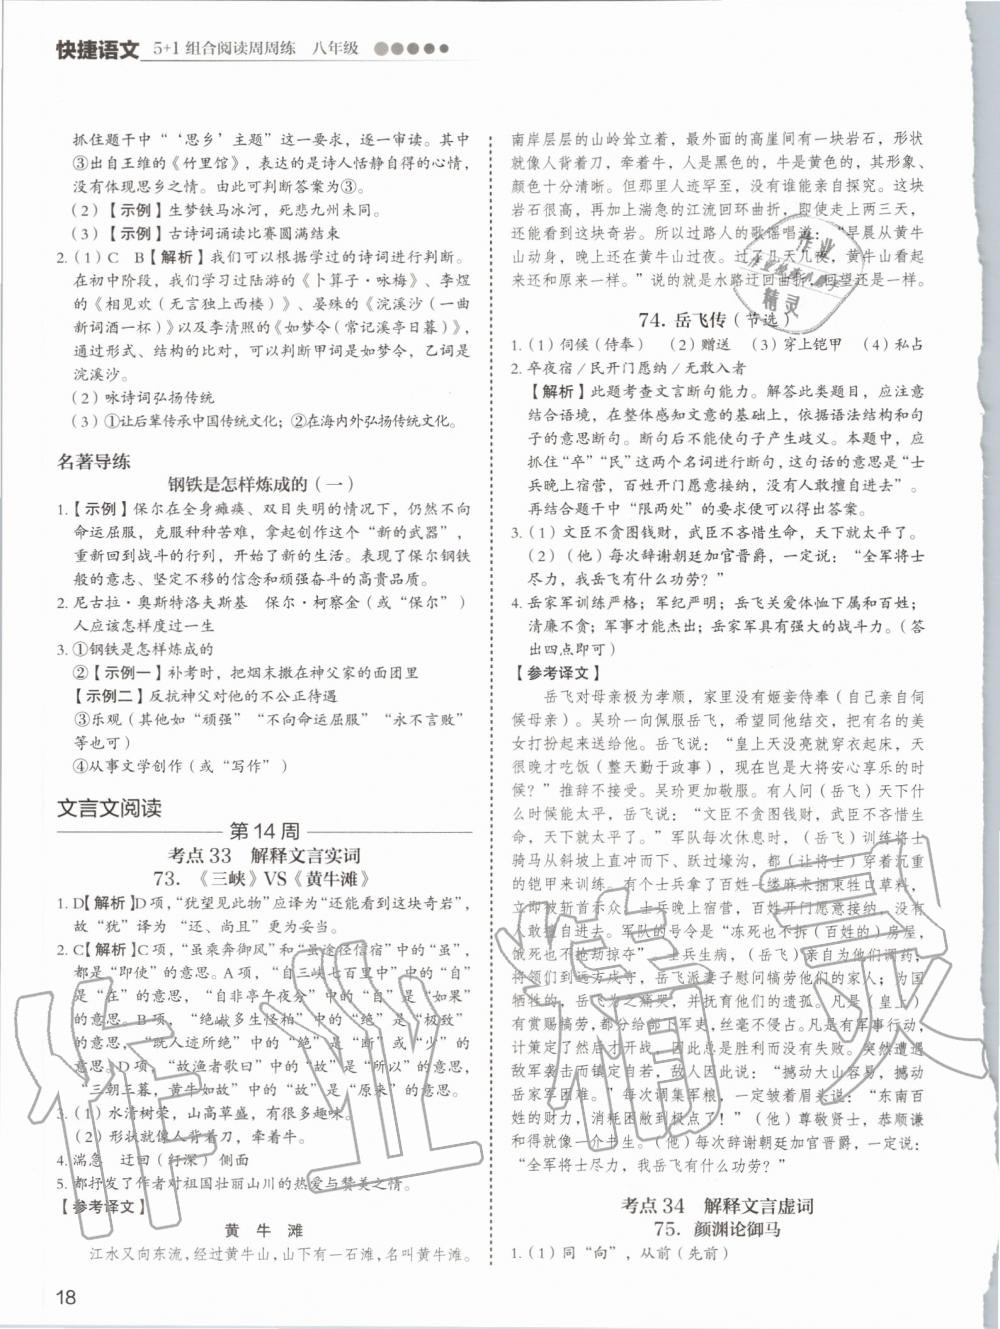 快捷语文 5+1 组合阅读周周练 八年级
抓住题干中“‘思乡’主题”这一要求，逐一审读。其中
③出自王维的《竹里馆》，表达的是诗人恬静自得的心情，
没有体现思乡之情。由此可判断答案为③。
（2）【示例】生梦铁马冰河，死悲九州未同。
（3）【示例】古诗词诵读比赛圆满结束
2.（1）C B【解析】我们可以根据学过的诗词进行判断。
在初中阶段，我们学习过陆游的《卜算子·咏梅》、李煜
的《相见欢（无言独上西楼）》、晏殊的《浣溪沙（一曲
新词酒一杯）》以及李清照的《如梦令（常记溪亭日暮）》，
通过形式、结构的比对，可以判断甲词是如梦令，乙词是
浣溪沙。
（2）咏诗词弘扬传统
（3）①让后辈传承中国传统文化；②在海内外弘扬传统文化。
名著导练
钢铁是怎样炼成的（一）
1.【示例】保尔在全身瘫痪、双目失明的情况下，仍然不向
命运屈服，克服种种苦难，拿起创作这个“新的武器”，
重新回到战斗的行列，开始了新的生活。表现了保尔钢铁
般的意志、坚定不移的信念和顽强奋斗的高贵品质。
2. 尼古拉·奥斯特洛夫斯基 保尔·柯察金（或“保尔”）
人应该怎样度过一生
3. ①钢铁是怎样炼成的
②【示例一】补考时，把烟末撒在神父家的面团里
【示例二】反抗神父对他的不公正待遇
③乐观（其他如“顽强”“不向命运屈服”“永不言败”
等也可）
④从事文学创作（或“写作”）
文言文阅读
第 14 周
考点 33 解释文言实词
73.《三峡》VS《黄牛滩》
1. D【解析】D项，“犹望见此物”应译为“还能看到这块奇岩”，
故“犹”译为“还、尚且”更为妥当。
2. C【解析】C项，“虽乘奔御风”和“虽途径信宿”中的“虽”，
都是“即使”的意思。A项，“自三峡七百里中”中的“自”
是“在”的意思，“自非亭午夜分”中的“自”是“如果”
的意思。B项，“绝巘多生怪柏”中的“绝”是“极致”
的意思，“既人迹所绝”中的“绝”是“断”或“少”的
意思。D项，“故渔者歌曰”中的“故”是“所以”的意思，
“三朝三暮，黄牛如故”中的“故”是“原来”的意思。
3.（1）水清树荣，山高草盛，有很多趣味。
（2）形状就像人背着刀，牵着牛。
4. 湍急 迂回（纡深）侧面
5. 都抒发了作者对祖国壮丽山川的热爱与赞美之情。
【参考译文】
黄 牛 滩
江水又向东流，经过黄牛山，山下有一石滩，名叫黄牛滩。
南岸层层的山岭耸立着，最外面的高崖间有一块岩石，形状
就像人背着刀，牵着牛，人是黑色的，牛是黄色的，其形象、
颜色十分清晰。但那里人迹罕至，没有谁能亲自探究。这块
岩石很高，再加上湍急的江流回环曲折，即使走上两天，还
能看到这块奇岩。所以过路人的歌谣唱道：“早晨从黄牛
山动身，晚上还在黄牛山过夜。过了几天几夜，黄牛山看起
来还和原来一样。”说的就是水路迂回曲折，回望还是一样。
74. 岳飞传（节选）
1.（1）伺候（侍奉） （2）赠送 （3）穿上铠甲 （4）私占
2. 卒夜宿／民开门愿纳／无敢入者
【解析】此题考查文言断句能力。解答此类题目，应注意
结合语境，在整体感知文意的基础上，依据语法结构和句
子的意思断句。断句后不能使句子产生歧义。本题中，应
抓住“卒”“民”这两个名词进行断句，这句话的意思是“士
兵晚上宿营，百姓开门愿意接纳，没有人敢擅自进去”。
再结合题干中“限两处”的要求便可以得出答案。
3.（1）文臣不贪图钱财，武臣不吝惜性命，天下就太平了。
（2）（他）每次辞谢朝廷加官晋爵，一定说：“全军将士
尽力，我岳飞有什么功劳？”
4. 岳家军训练严格；军纪严明；岳飞关爱体恤下属和百姓；
清廉不贪；军事才能杰出；岳家军具有强大的战斗力。（答
出四点即可）
【参考译文】
岳飞对母亲极为孝顺，家里没有姬妾侍奉（自己亲自伺
候母亲）。吴玠一向佩服岳飞，希望同他结交，把有名的美
女打扮起来送给他。岳飞说：“皇上天没亮就穿衣起床，天
晚才吃饭（整天勤于政事），现在岂是大将安心享乐的时
候？”推辞不接受。吴玠更加敬服。有人问（岳飞）天下什
么时候能太平，岳飞说：“文臣不贪图钱财，武臣不吝惜生
命，天下就太平了。”军队每次休整，（岳飞）就命令将士
骑马从斜坡上急驰而下、跃过壕沟，（让将士）穿着沉重
的铠甲来训练。有个士兵拿了百姓一缕麻来捆束牲口草料，
立即被斩首示众。士兵晚上宿营，百姓开门愿意接纳，没有
人敢擅自进去。军队的号令是“冻死也不拆（百姓的）房屋，
饿死也不抢劫掠夺”。士兵生病，（岳飞）亲自为他们调药；
将领们到远方戍守，岳飞派妻子慰问犒劳他们的家人；为国
牺牲的，岳飞为之痛哭，并抚育他们的遗孤。凡是（皇上）
有赏赐犒劳，都分给部下军吏，丝毫不占。凡是有军事行动，
计策定了然后才开战，因此总是胜利而没有失败。突然遭遇
敌军袭击而镇定自若，（敌军）说：“撼动大山容易，撼动
岳家军困难。”每次调集军粮，一定皱着眉头说：“东南百
姓的财力，消耗困敝到极点了！”（他）尊敬贤士，恭顺谦
和得就像一介书生。（他）每次辞谢朝廷加官晋爵，一定说：
“全军将士尽力，我岳飞有什么功劳？”
考点 34 解释文言虚词
75. 颜渊论御马
1.（1）同“向”，从前（先前）
18
作业精灵